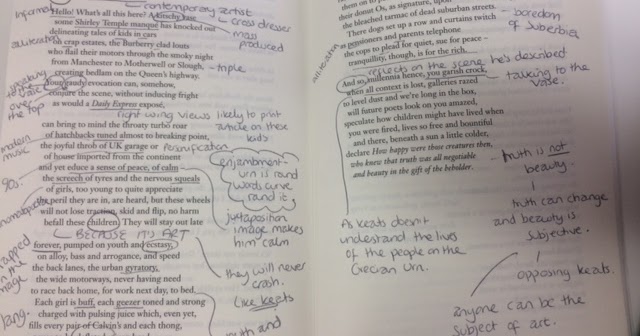 contemporary artist
Informal
Hello! What's all this here? A kitschy vase
cross dresser
some Shirley Temple manqué has knocked out
mass
produced
delineating tales of kids in cars
on crap estates, the Burberry clad louts
who flail their motors through the smoky night
from Manchester to Motherwell or Slough,
triple
creating bedlam on the Queen's highway.
over
the top
conjure the scene, without inducing fright
as would a Daily Express exposé,
right wing views likely to print
article on these
kids
can bring to mind the throaty turbo roar
of hatchbacks tuned almost to breaking point,
the joyful throb of UK garage or
Personification
modern
music
of house imported from the continent
and yet educe a sense of peace, of calm –
90s
the screech of tyres and the nervous squeals
of girls, too young to quite appreciate
the peril they are in, are heard, but these wheels
will not lose traction, skid and flip, no harm
befall these children. They will stay out late
enjambment-
urn is round
words curve
round it
juxtaposition
image makes
him calm
BECAUSE IT'S ART
forever, pumped on youth and ecstasy,
on alloy, bass and arrogance, and speed
the back lanes, the urban gyratory,
the wide motorways, never having need
to race back home, for work next day, to bed.
they will never
crash.
Like Keats
Each girl is buff, each geezer toned and strong,
charged with pulsing juice which, even yet,
fills every pair of Calvin's and each thong,
their donut Os, as signature, upon
the bleached tarmac of dead suburban streets.
There dogs set up a row and curtains twitch
as pensioners and parents telephone
the cops to plead for quiet, sue for peace –
tranquility, though, is for the rich.
boredom
of suberbia
reflects on the scene he's described
talking to the
vase.
And so, millennia hence, you garish crock,
when all context is lost, galleries razed
to level dust and we're long in the box,
will future poets look on you amazed,
speculate how children might have lived when
you were fired, lives so free and bountiful
and there, beneath a sun a little colder,
declare How happy were those creatures then,
who knew that truth was all negotiable
and beauty in the gift of the beholder.
truth is not
beauty.
truth can change
and beauty is
subjective.
opposing keats.
anyone can be the
subject of art.
As Keats doesn't
understand the lives
of the people on the
Grecian Urn.